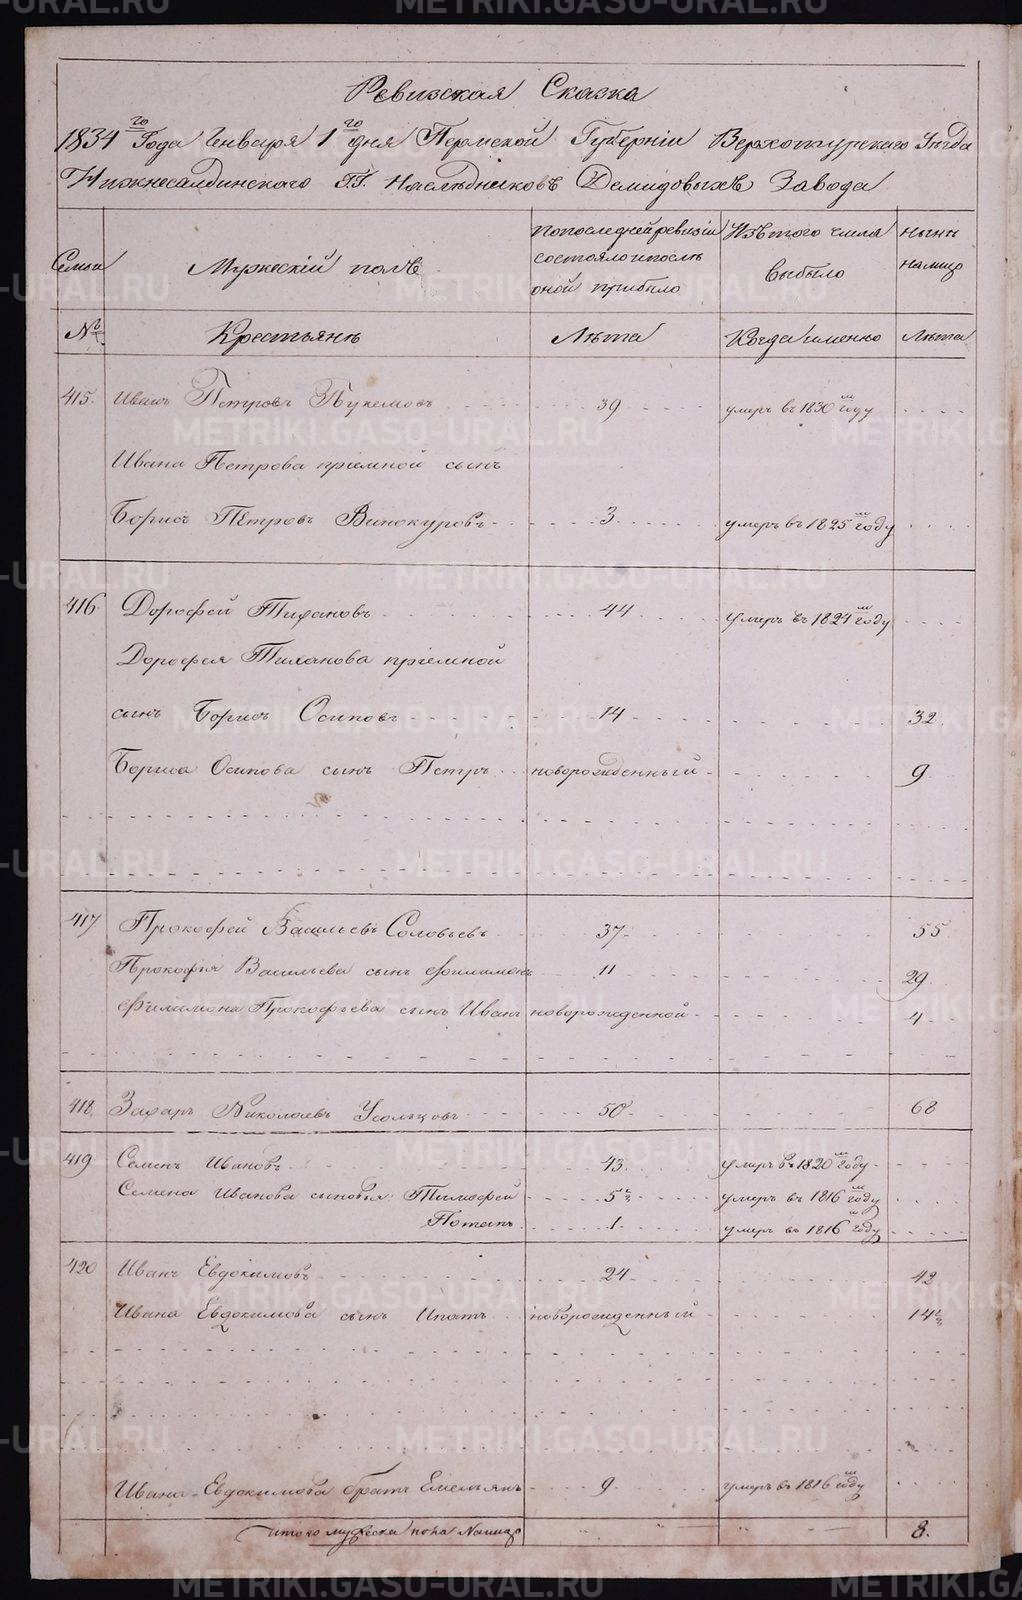 Ревизская Сказка
1834го Года Генваря 1го дня Пермской Губерніи Верхотурскаго Уѣзда
Нижнесалдинскаго Г.Г. Наслѣдниковъ Демидовыхъ Завода
Семьи Мужескій полъ По последней ревизіи состояло и послѣ оной прибыло Изъ того числа выбыло Нынѣ на лицо
№ Крестьянъ Лѣта Когда именно Лѣта
415. Иванъ Петровъ 39 умеръ въ 1830м году
Ивана Петрова пріемной сынъ
Борисъ Петровъ Винокуровъ 3 умеръ въ 1825м году
416. Дорофей Тихановъ 44 умеръ въ 1824м году
Дорофея Тиханова пріемной
сынъ Борисъ Осиповъ 14 32.
Бориса Осипова сынъ Петръ новорожденный 9
417 Прокофей Васильевъ Соловьевъ 37 55
Прокофія Васильева сынъ Филимонъ 11 29
Филимона Прокофьева сынъ Иванъ новорожденной 4
418. Захаръ Николаевъ Усольцовъ 50 68
419 Семенъ Ивановъ 43 умеръ въ 1820м году
Семена Иванова сыновья Тимофей 5½ умеръ въ 1816м году
Потапъ 1 умеръ въ 1816м году
420 Иванъ Евдокимовъ 24 42
Ивана Евдокимова сынъ Ипатъ новорожденный 14½
Ивана Евдокимова братъ Емельянъ 9 умеръ въ 1816м году
Итого мужеска пола на лицо 8.
METRIKI.GASO-URAL.RU